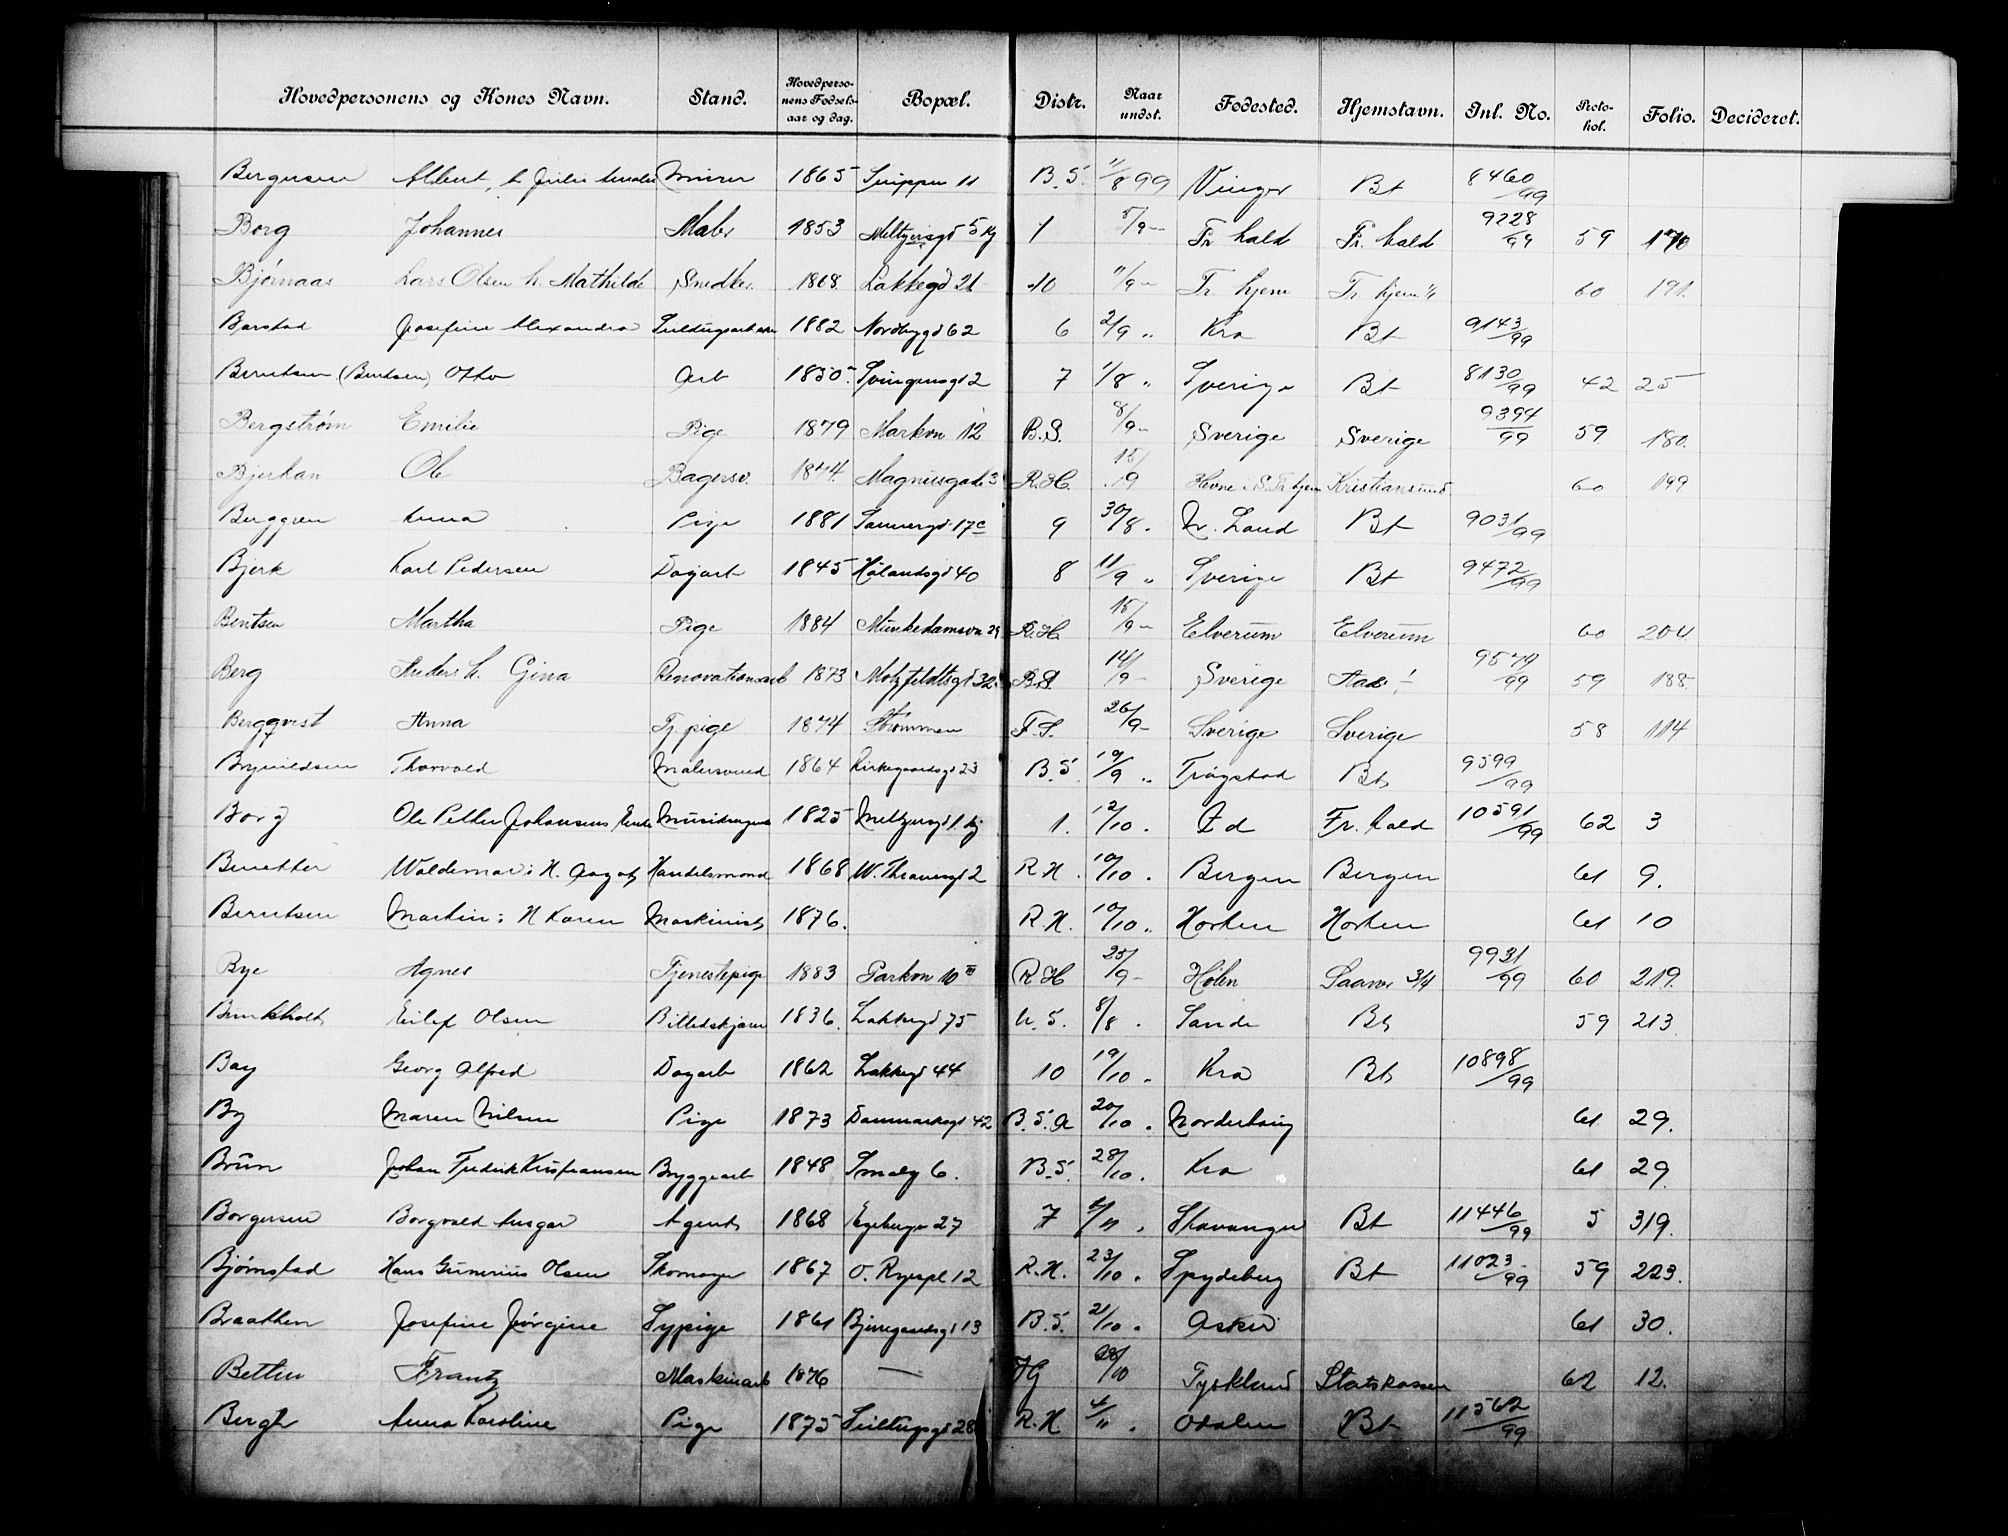 Hovedpersonens og Kones Navn. Stand. Hovedpersonens Fødselsaar og dag. Bopæl. Distr. Naar undst. Fødested. Hjemstavn. Inl. No. Protokol. Folio. Decideret.
Bergersen Albert, h. Murer 1865 11 B.S. 11/8 99 Vinger Bt 8460/99
Borg Johannes Maler 1853 Meltzersgd 5 1 5/9 - Fr hald Fr. hald 9228/99 59 170
Bjørnaas Lars Olsen h. Mathilde Snedker 1868 Lakkegd 21 10 11/9 - Tr. hjem Tr. hjem 60 191.
Barstad Josefine Alexandra 1882 Nordbygd 62 6 2/9 " Kra Bt 9143/99
Berntsen (Bentsen) Otto Arb 1850 Springersgd 2 7 1/8 " Sverige Bt 8130/99 42 25
Bergstrøm Emilie Pige 1879 Markvn 12 B.S. 8/9 - Sverige Sverige 9394/99 59 180.
Bjerkan Ole Bagersv. 1874. Magnusgade 3 R.H. 15/9 Hevne i S. Tr hjem Kristiansund 60 199
Berggren Anna Pige 1881 Sannergd 17c 9 30/8 . N. Land Bt 9031/99
Bjerk Karl Pedersen Dagarb 1845 Hølandsgd 40 8 11/9 " Sverige Bt 9472/99
Bentsen Martha Pige 1884 Munkedamsvn 29 R.H. 15/9 - Elverum Elverum 60 204
Berg Anders h. Gina Renovationsarb 1873 Motzfeldtsgd 32 B.S. 14/9 - Sverige 9579/99 59 188.
Bergqvist Anna Tj. pige 1874 Strømmen F.S. 26/9 - Sverige Sverige 58 114
Brynildsen Thorvald Malersvend 1864 Kirkegaardsgd 23 B.S. 19/9 " Trøgstad Bt 9599/99
Borg Ole Petter Johansens Enke 1825 Meltzersgd 1. 1. 12/10 . Id Fr. hald 10591/99 62 3
Waldemar: H. Aagot Handelsmand 1868 W. Thranesgd 2 R.H. 10/10 . Bergen Bergen 61 9.
Berntsen Martin: H Karen Maskinist 1876. R.H. 10/10 . Horten Horten 61 10
Bye Agnes Tjenestepige 1883 Parkvn 10 III R.H 25/9 - Hølen Saaner 3/4 9931/99 60 219.
Eilef Olsen Billedskjærer 1836. Lakkegd 75 U.S. 8/8 . Sande Bt 59 213.
Bay Georg Alfred Dagarb 1862 Lakkegd 44 10 19/10 . Kra Bt 10898/99
By Maren Nilsen Pige 1873 Danmarksgd 42 B.S.A 20/10 . Norderhaug 61 29.
Brun Johan Fredrik Kristiansen Bryggearb 1848 Smalg 6. B.S. 28/10 . Kra 61 29.
Borgersen Borgvald Ansgar Agent 1868 Egebergv 27 7 Stavanger Bt 11446/99 5 319.
Bjørnstad Hans Gunerius Olsen Skomager 1867 O. Ryespl 12 R.H. 23/10 . Spydeberg Bt 11023/99 59 223.
Braathen Josefine Jørgine Sypige 1861 Bjerregaardsgd 13 B.S. 21/10 . Asker 61 30.
Frantz Maskinarb 1876 — 28/10 Tyskland Statskassen 62 12.
Bergh Anna Karoline Pige 1875 Seildugsgd 28 R.H. 4/11 . Odalen Bt 11562/99